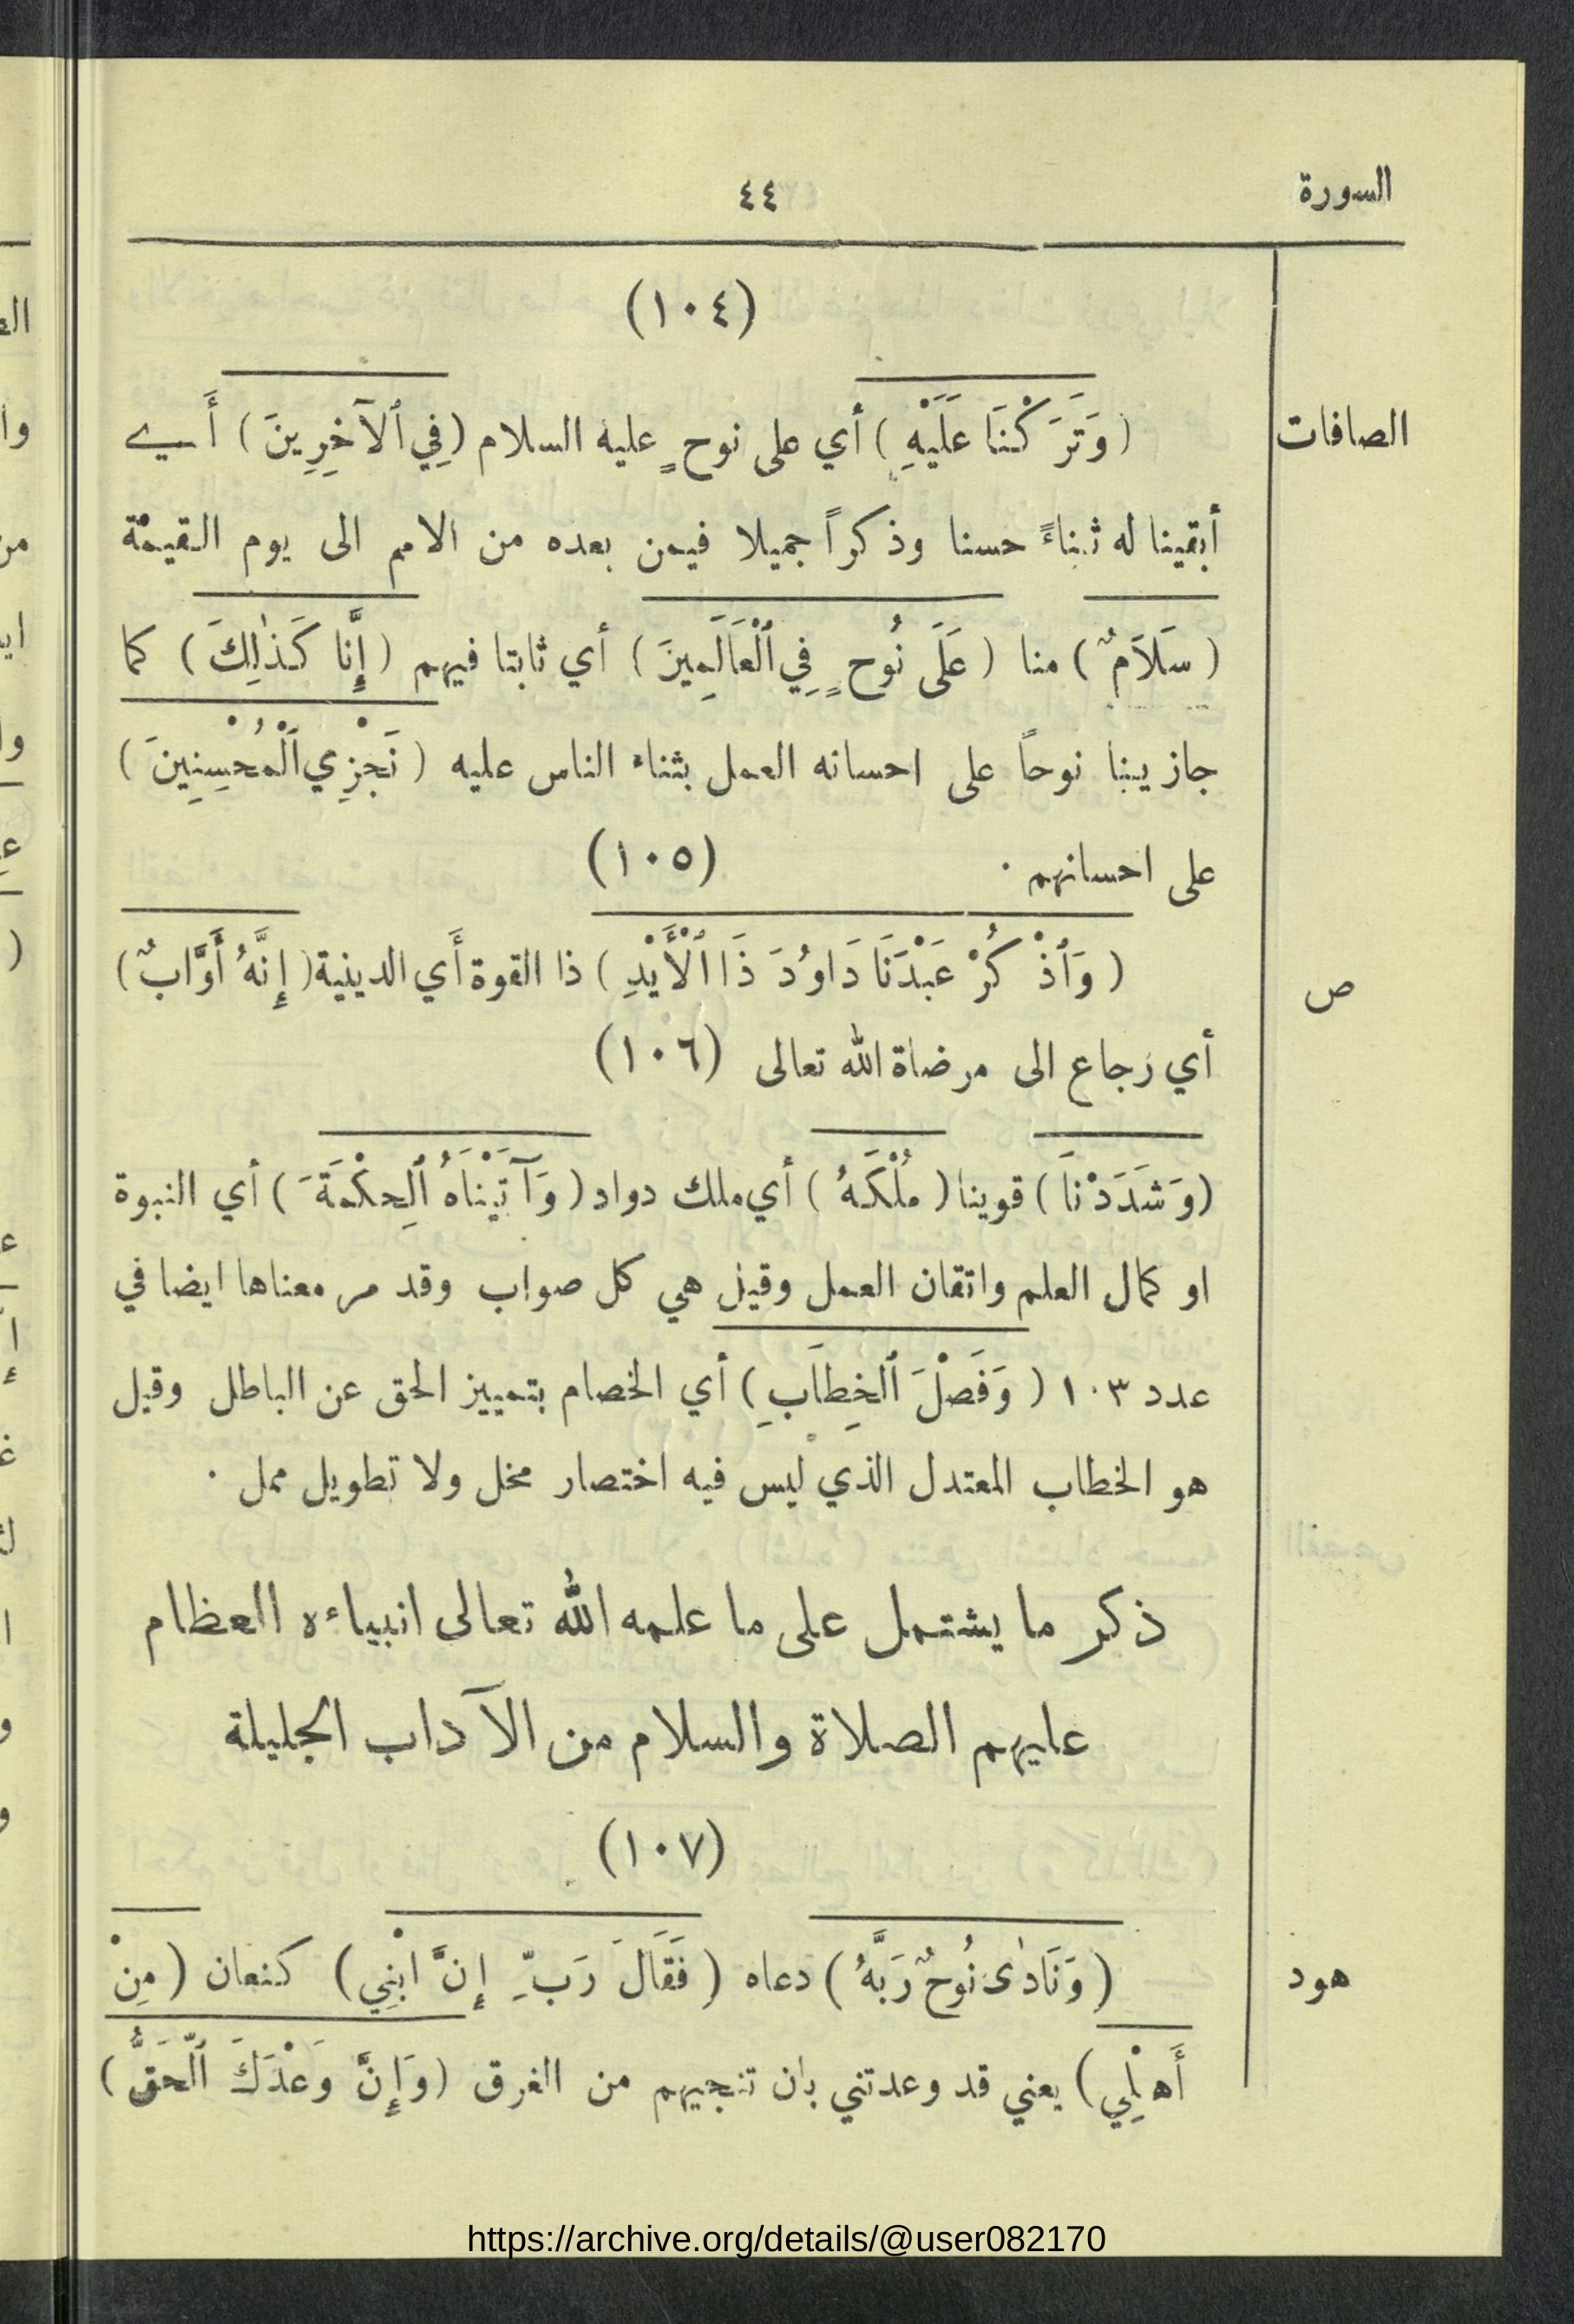 السورة
٤٤
(١٠٤)
الصافات
(وَتَرَكْنَا عَلَيْهِ) أي على نوحٍ عليه السلام (فِي ٱلآخِرِينَ) أَي
أبقينا له ثناءً حسنا وذكراً جميلا فيمن بعده من الامم الى يوم القيمة
(سَلاَمٌ) منا (عَلَى نُوحٍ فِي ٱلْعَالَمِينَ) أي ثابتا فيهم (إِنَّا كَذٰلِكَ) كما
جازينا نوحاً على احسانه العمل بثناء الناس عليه (نَجْزِي ٱلْمُحْسِنِينَ)
على احسانهم · (١٠٥)
ص
(وَٱذْكُرْ عَبْدَنَا دَاوُدَ ذَا ٱلْأَيْدِ) ذا القوة أَي الدينية (إِنَّهُ أَوَّابٌ)
أي رَجاع الى مرضاة الله تعالى (١٠٦)
(وَشَدَدْنَا) قوينا (مُلْكَهُ) أي ملك دواد (وَآتَيْنَاهُ ٱلْحِكْمَةَ) أي النبوة
او كمال العلم واتقان العمل وقيل هي كل صواب وقد مر معناها ايضا في
عدد ١٠٣ (وَفَصْلَ ٱلخِطَابِ) أي الخصام بتمييز الحق عن الباطل وقيل
هو الخطاب المعتدل الذي ليس فيه اختصار مخل ولا تطويل ممل ·
ذكر ما يشتمل على ما علمه الله تعالى انبياءه العظام
عليهم الصلاة والسلام من الآداب الجليلة
(١٠٧)
هود
(وَنَادٰى نُوحٌ رَبَّهُ) دعاه (فَقَالَ رَبِّ إِنَّ ابْنِي) كنعان (مِنْ
أَهْلِي) يعني قد وعدتني بان تنجيهم من الغرق (وَإِنَّ وَعْدَكَ ٱلْحَقُّ)
https://archive.org/details/@user082170